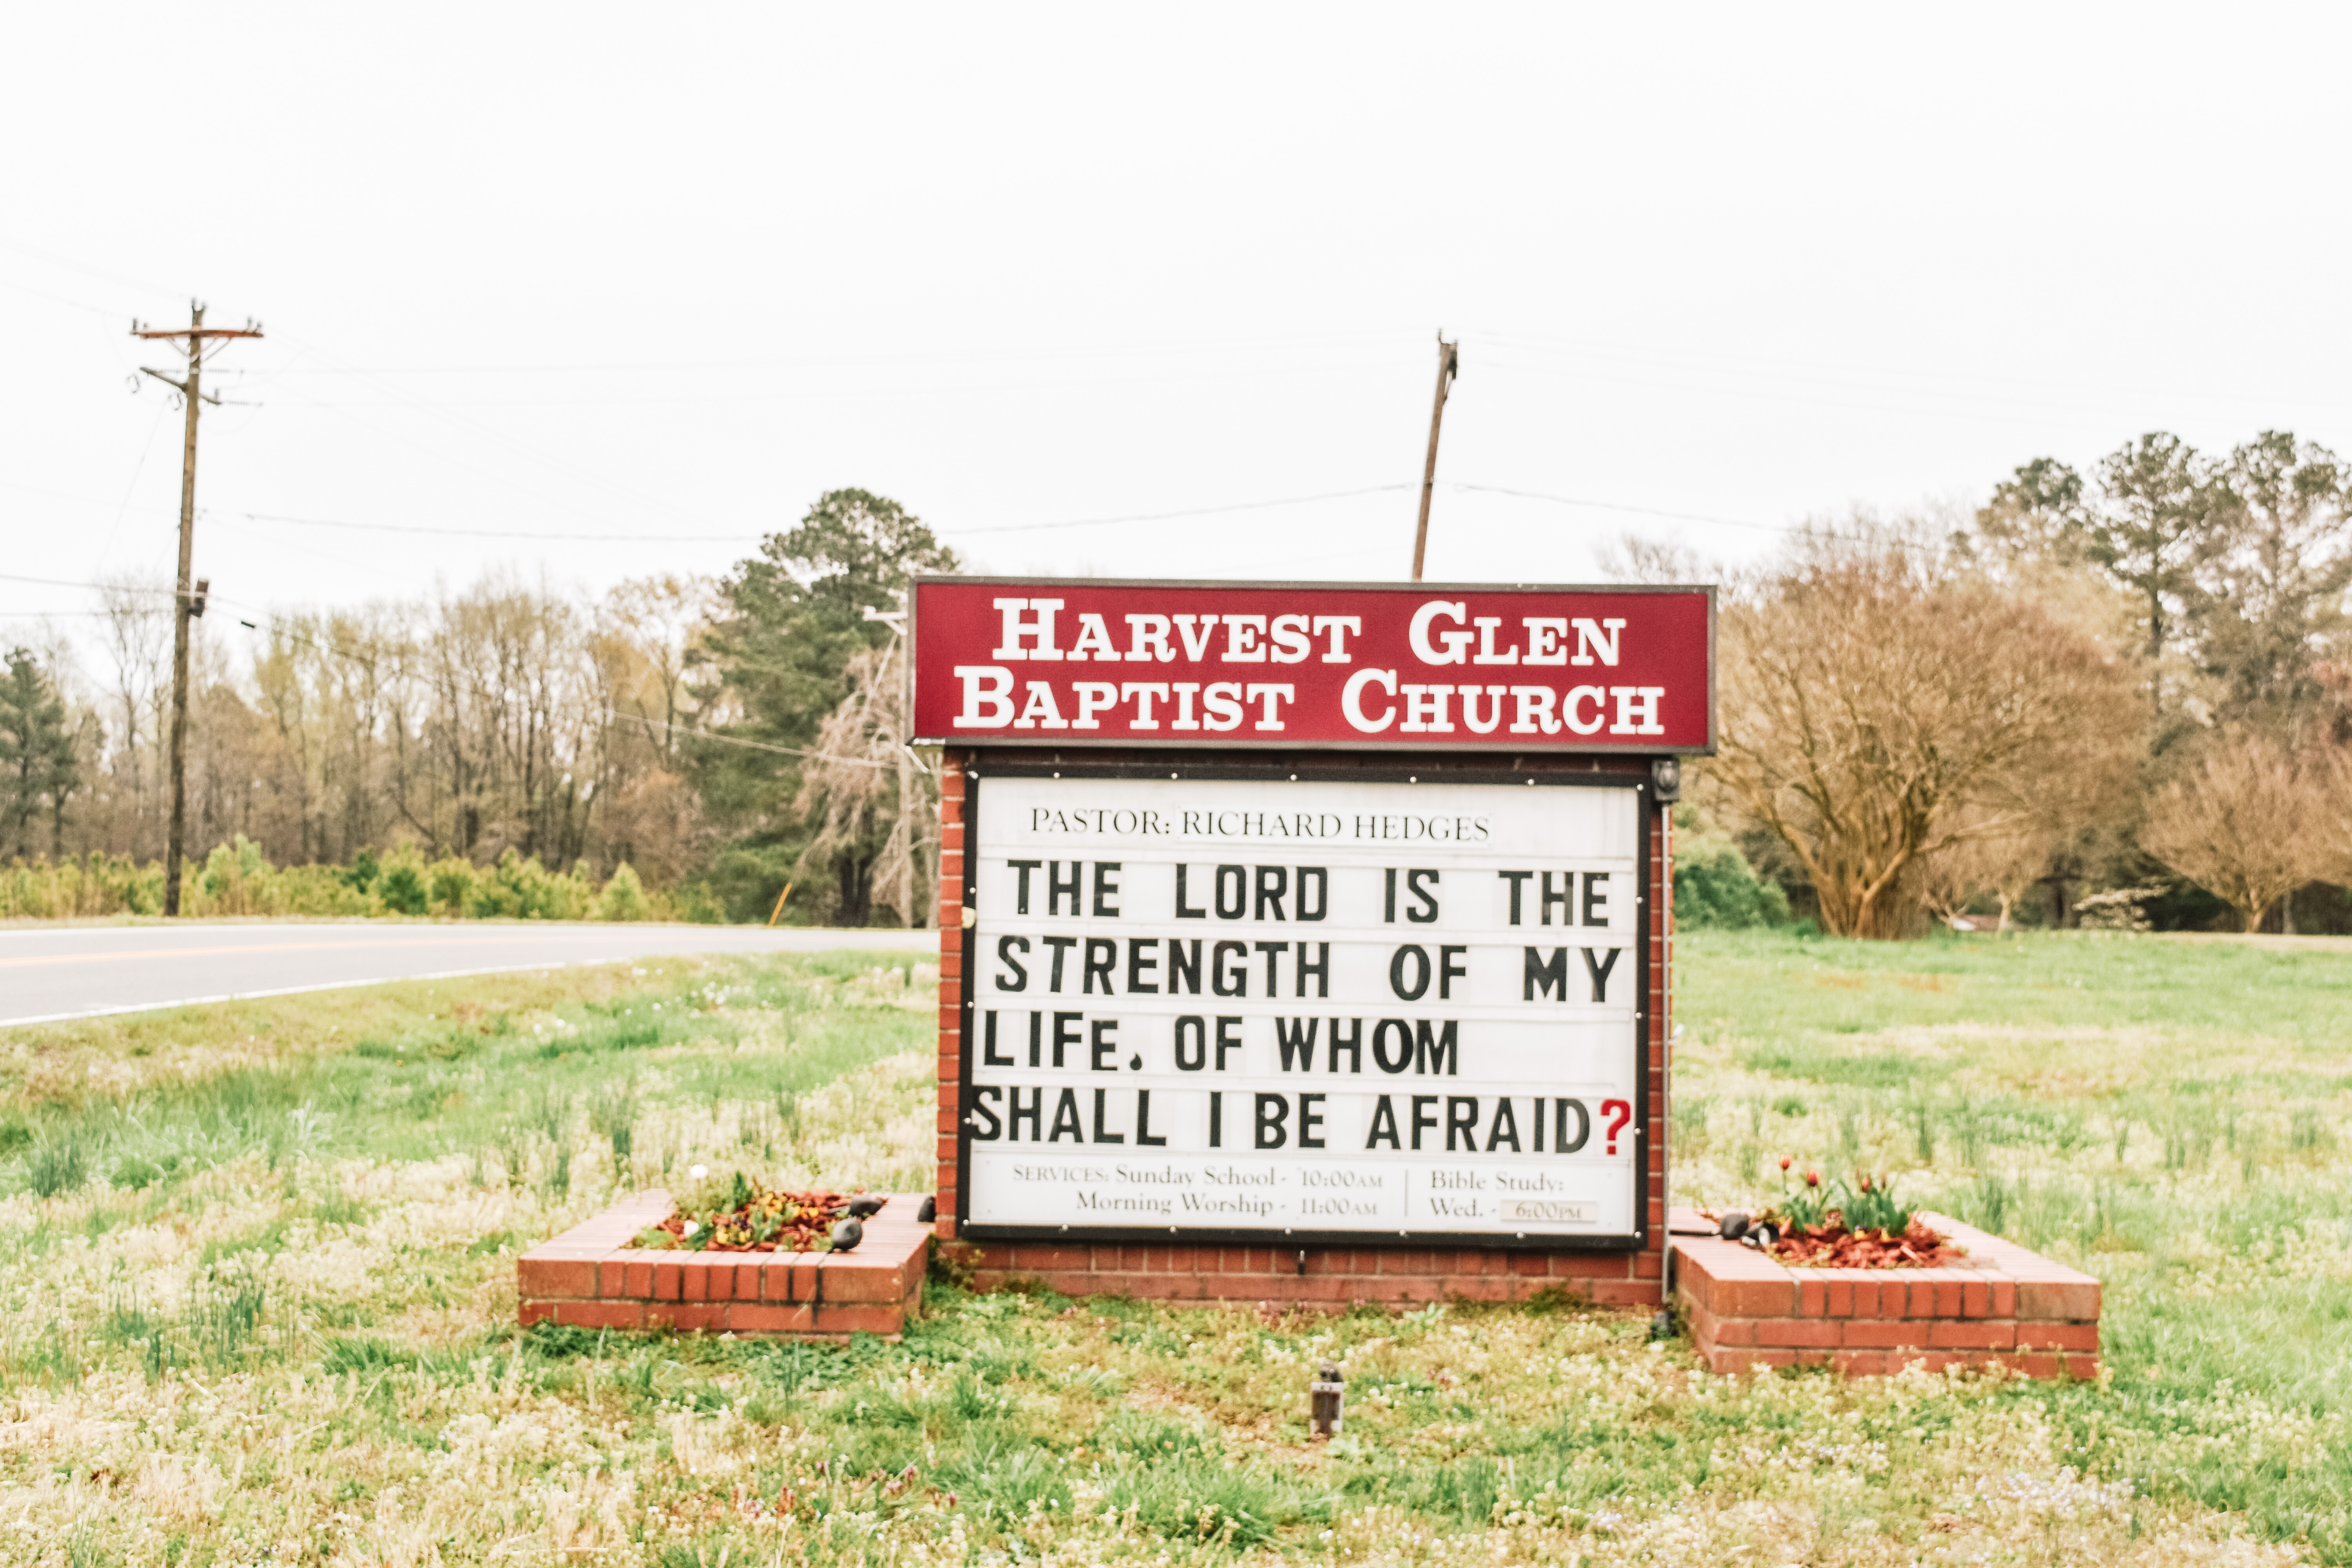 HARVEST GLEN
BAPTIST CHURCH
PASTOR: RICHARD HEDGES
THE LORD IS THE
STRENGTH OF MY
LIFE. OF WHOM
SHALL I BE AFRAID?
SERVICES: Sunday School - 10:00AM
Morning Worship - 11:00AM
Bible Study:
Wed. - 6:00PM